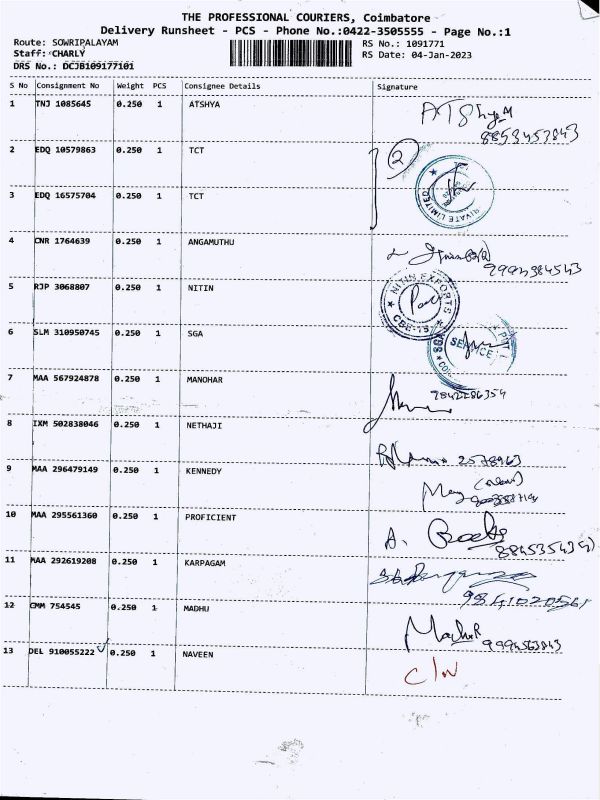 THE PROFESSIONAL COURIERS, Coimbatore
Delivery Runsheet - PCS - Phone No.:0422-3505555 - Page No.:1
Route: SOWRIPALAYAM
Staff: CHARLY
DRS No.: DCJB109177101
RS No.: 1091771
RS Date: 04-Jan-2023
S No Consignment No Weight PCS Consignee Details Signature
1 TNJ 1085645 0.250 1 ATSHYA
8853453843
2 EDQ 10579863 0.250 1 TCT 2
3 EDQ 16575704 0.250 1 TCT
RIVATE LIMITED
4 CNR 1764639 0.250 1 ANGAMUTHU
5 RJP 3068807 0.250 1 NITIN
NITIN EXPORTS
CBE-15
6 SLM 310950745 0.250 1 SGA
SGA SERVICE PVT
7 MAA 567924878 0.250 1 MANOHAR
8 IXM 502838046 0.250 1 NETHAJI
9 MAA 296479149 0.250 1 KENNEDY
10 MAA 295561360 0.250 1 PROFICIENT
A.
11 MAA 292619208 0.250 1 KARPAGAM
12 CMM 754545 0.250 1 MADHU
9994563843
13 DEL 910055222 0.250 1 NAVEEN